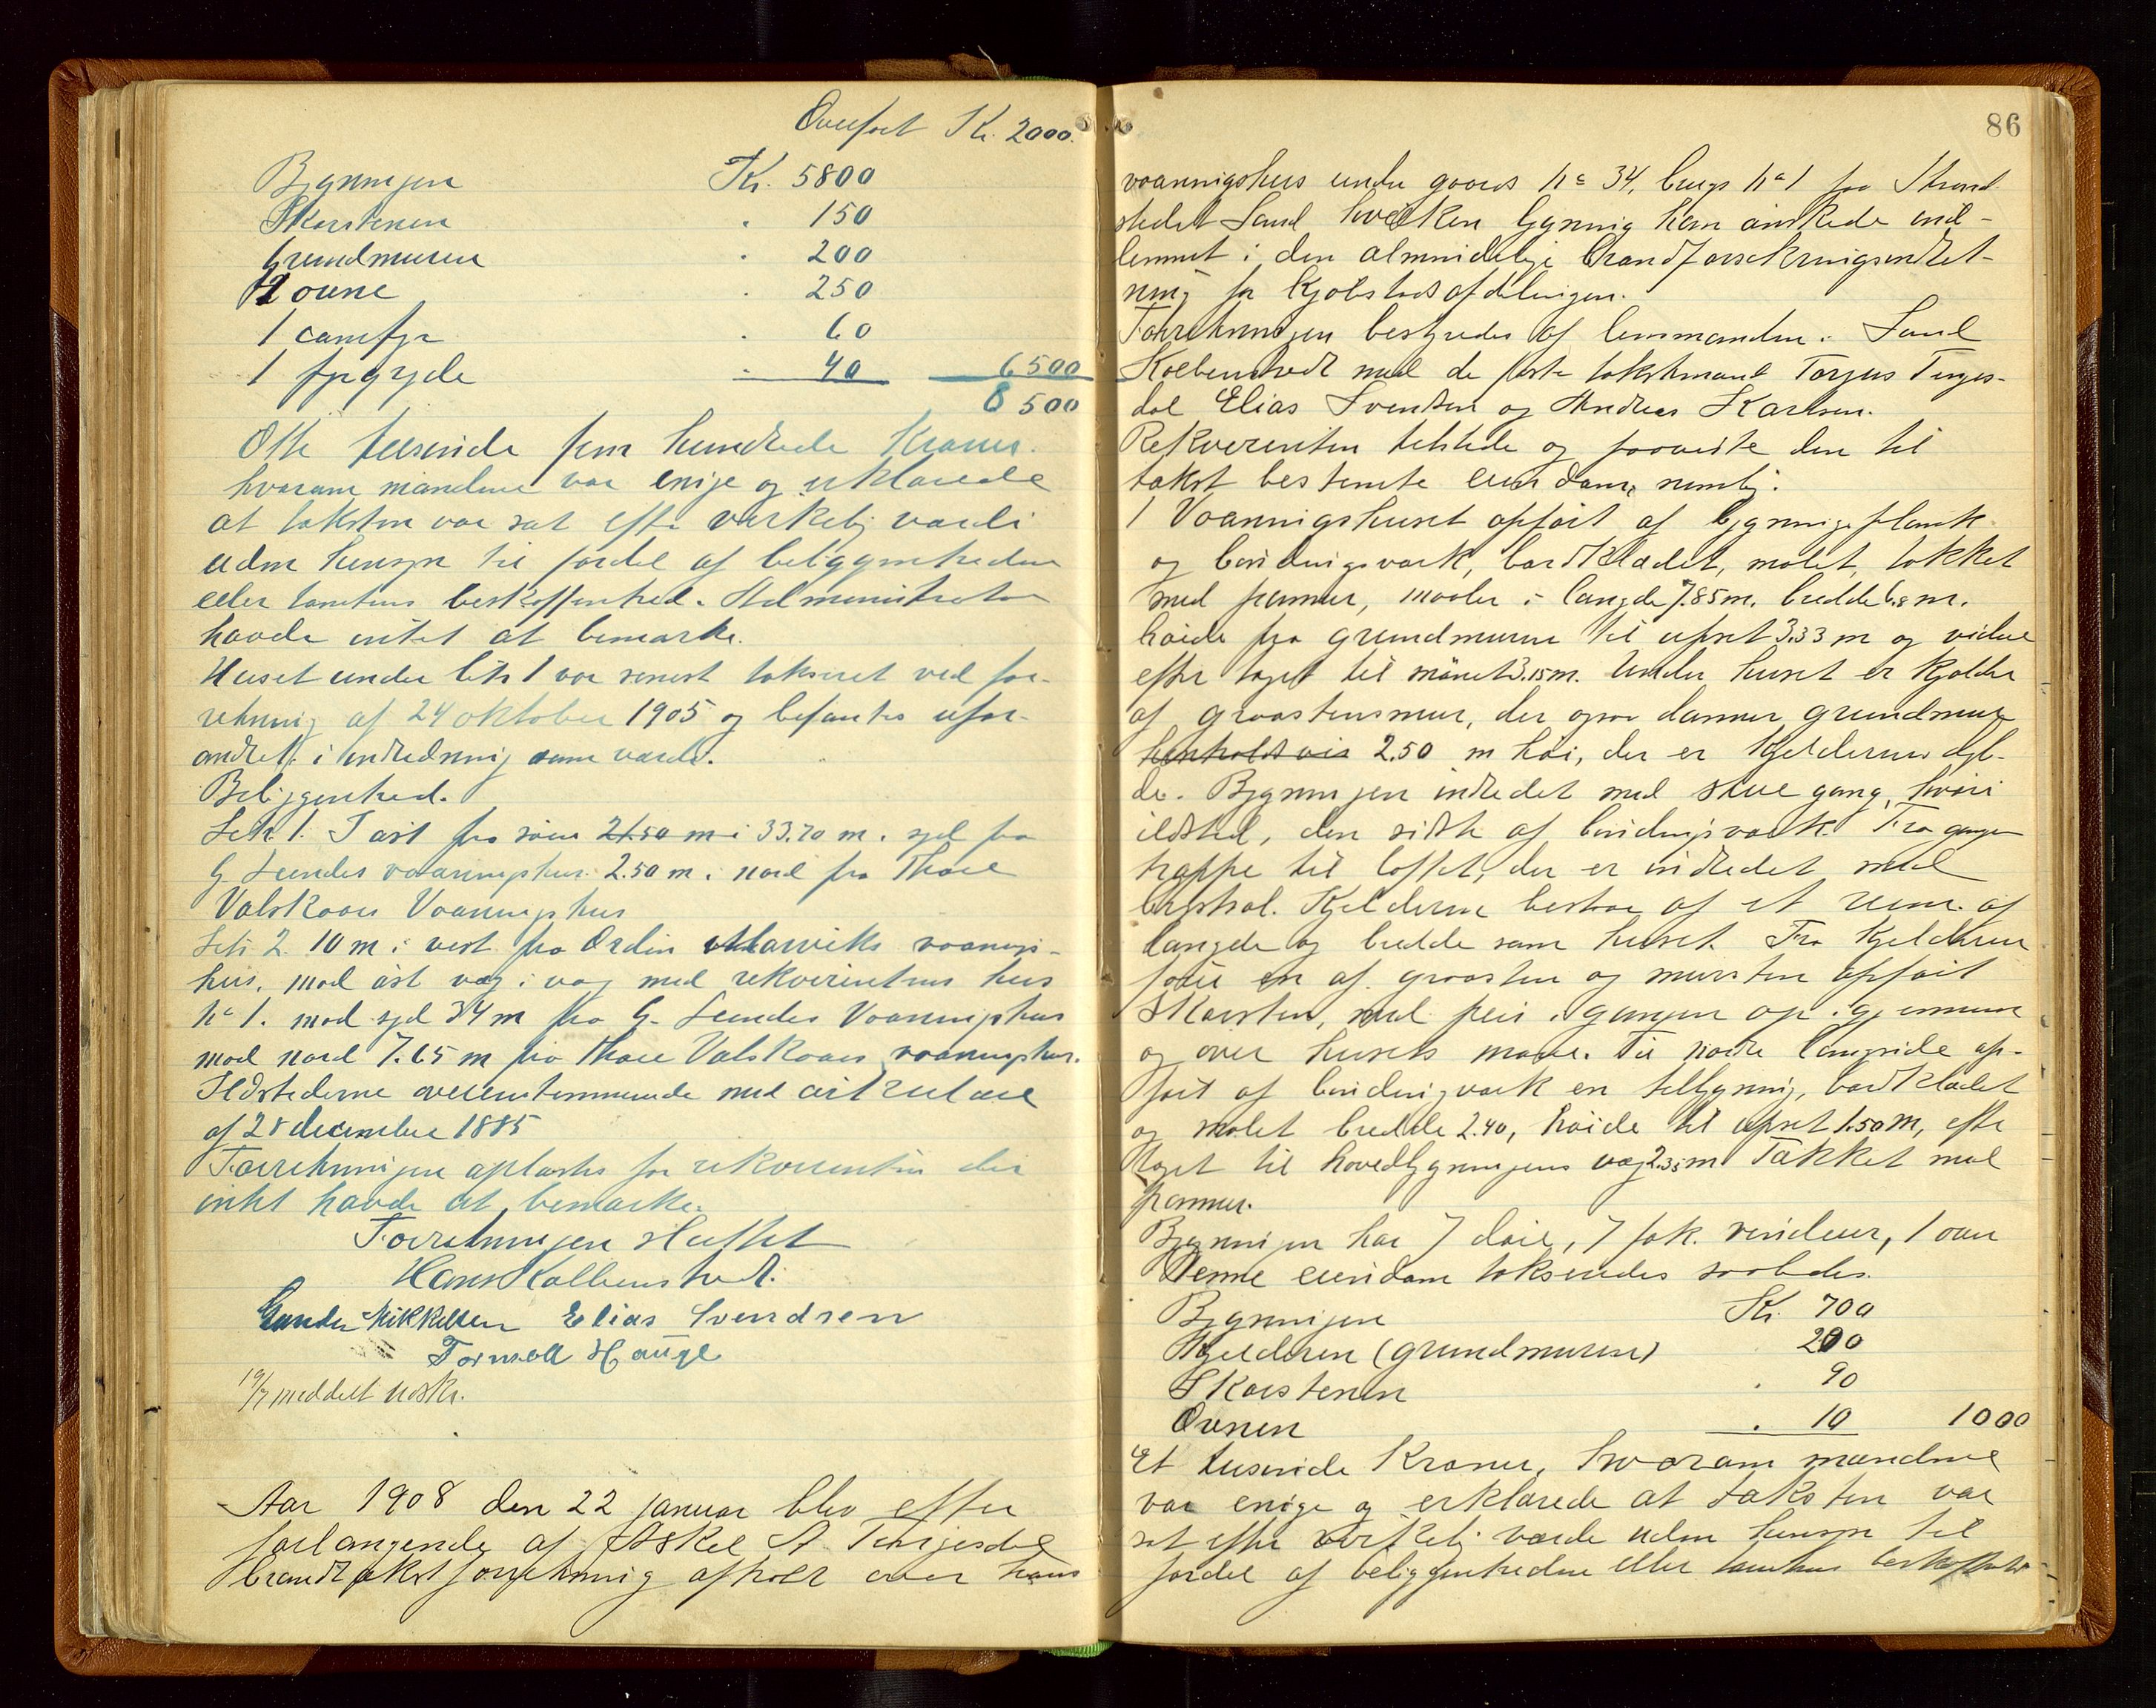 Overført Kr. 2000.
Bygningen Kr. 5800
Skorstenen " 150
Grundmuren " 200
2 ovne " 250
1 comfyr " 60
1 fyrgryde " 40 6500
8500
Otte tusinde fem hundrede Kroner.
hvorom mændene var enige og erklærede
at taksten var sat efter virkelig værdi
uden hensyn til fordel af beliggenheden
eller tomtens beskaffenhed. Administrator
havde intet at bemærke.
Huset under litr 1 var senest takseret ved for-
retning af 24 oktober 1905 og befantes ufor-
andret i indredning som værdi.
Beliggenhed.
Litr 1. I øst fra søen 21.50 m i 33.70 m. syd fra
G. Lundes vaaningshus 2.50 m. i nord fra Thore
Valskaars Vaaningshus
Litr 2. 10 m. i vest fra Ordin Marviks vaanings-
hus, mod øst væg i væg med rekvirentens hus
No 1. mod syd 34 m fra G. Lundes Vaaningshus
mod nord 7.65 m fra Thore Valskaars vaaningshus.
Ildstederne overenstemmende med cirkulære
af 28 december 1885
Forretningen oplæstes for rekvirenten der
intet havde at bemærke.
Forretningen sluttet
Hans Kolbenstvedt.
Gunder Mikkelsen Elias Svendsen
Tormod Hauge
19/7 meddelt udskr.
Aar 1908 den 22 januar blev efter
forlangende af Askel A Tengesdal
brandtakstforretning afholt over hans
86
vaaningshus under gaards No 34, brugs No 1 paa Strand-
stedet Sand hvilken bygning han ønskede ind-
lemmet i den almindelige Brandforsekringsindret-
ning for kjøbstadsafdelingen.
Forretningen bestyredes af lensmanden i Sand
Kolbenstvedt med de faste takstmænd Torjus Tenges-
dal Elias Svendsen og Andreas Karlsen.
Rekverenten tilstede og paaviste den til
takst bestemte eiendom, nemlig:
1 Vaaningshuset opført af bygningsplank
og bindingsværk, bordklædet, malet, tækket
med panner, maaler i længde 7.85 m. bredde 6.8 m.
høide fra grundmuren til ufset 3.33 m og videre
efter taget til mønet 3.15 m. Under huset er kjælder
af graastensmur, der ogsaa danner grundmur
henholdsvis 2.50 m høi, der er kjelderens dyb-
de. Bygningen indredet med stue gang, hvori
ildsted, den sidste af bindingsværk. Fra gangen
trappe til loftet, der er indredet med
brystval. Kjelderen bestaar af et rum af
længde og bredde som huset. Fra kjelderen
fører en af graasten og mursten opført
Skorsten, med peis i gangen op igjennem
og over husets møne. Til nordre langside op-
ført af bindingværk en tilbygning, bordklædet
og malet bredde 2.40, høide til ufset 1.50 m, efter
taget til hovedbygningens væg 2.35 m. Tækket med
panner.
Bygningen har 7 døre, 7 fak. vinduer, 1 ovn
Denne eiendom taksendes saaledes.
Bygningen Kr. 700
Kjelderen (grundmuren) " 200
Skorstenen " 90
Ovnen " 10 1000
Et tusinde Kroner, hvorom mændene
var enige og erklærede at taksten var
sat efter virkelig værde uden hensyn til
fordel af beliggenhedene eller tomtens beskaffenhed